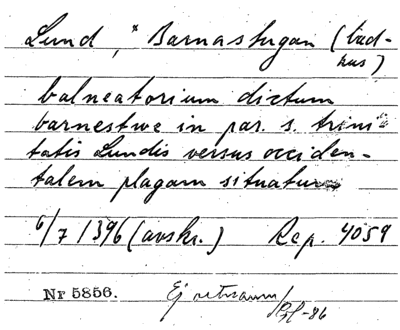 Lund, * Barnastugan (bad-
hus)
balneatorium dictum
barnestwe in par. s. trini-
tatis Lundis versus occiden-
talem plagam situatum
6/7 1396 (avskr.) Rep. 4059
Nr 5856. Ej ortnamn / -86